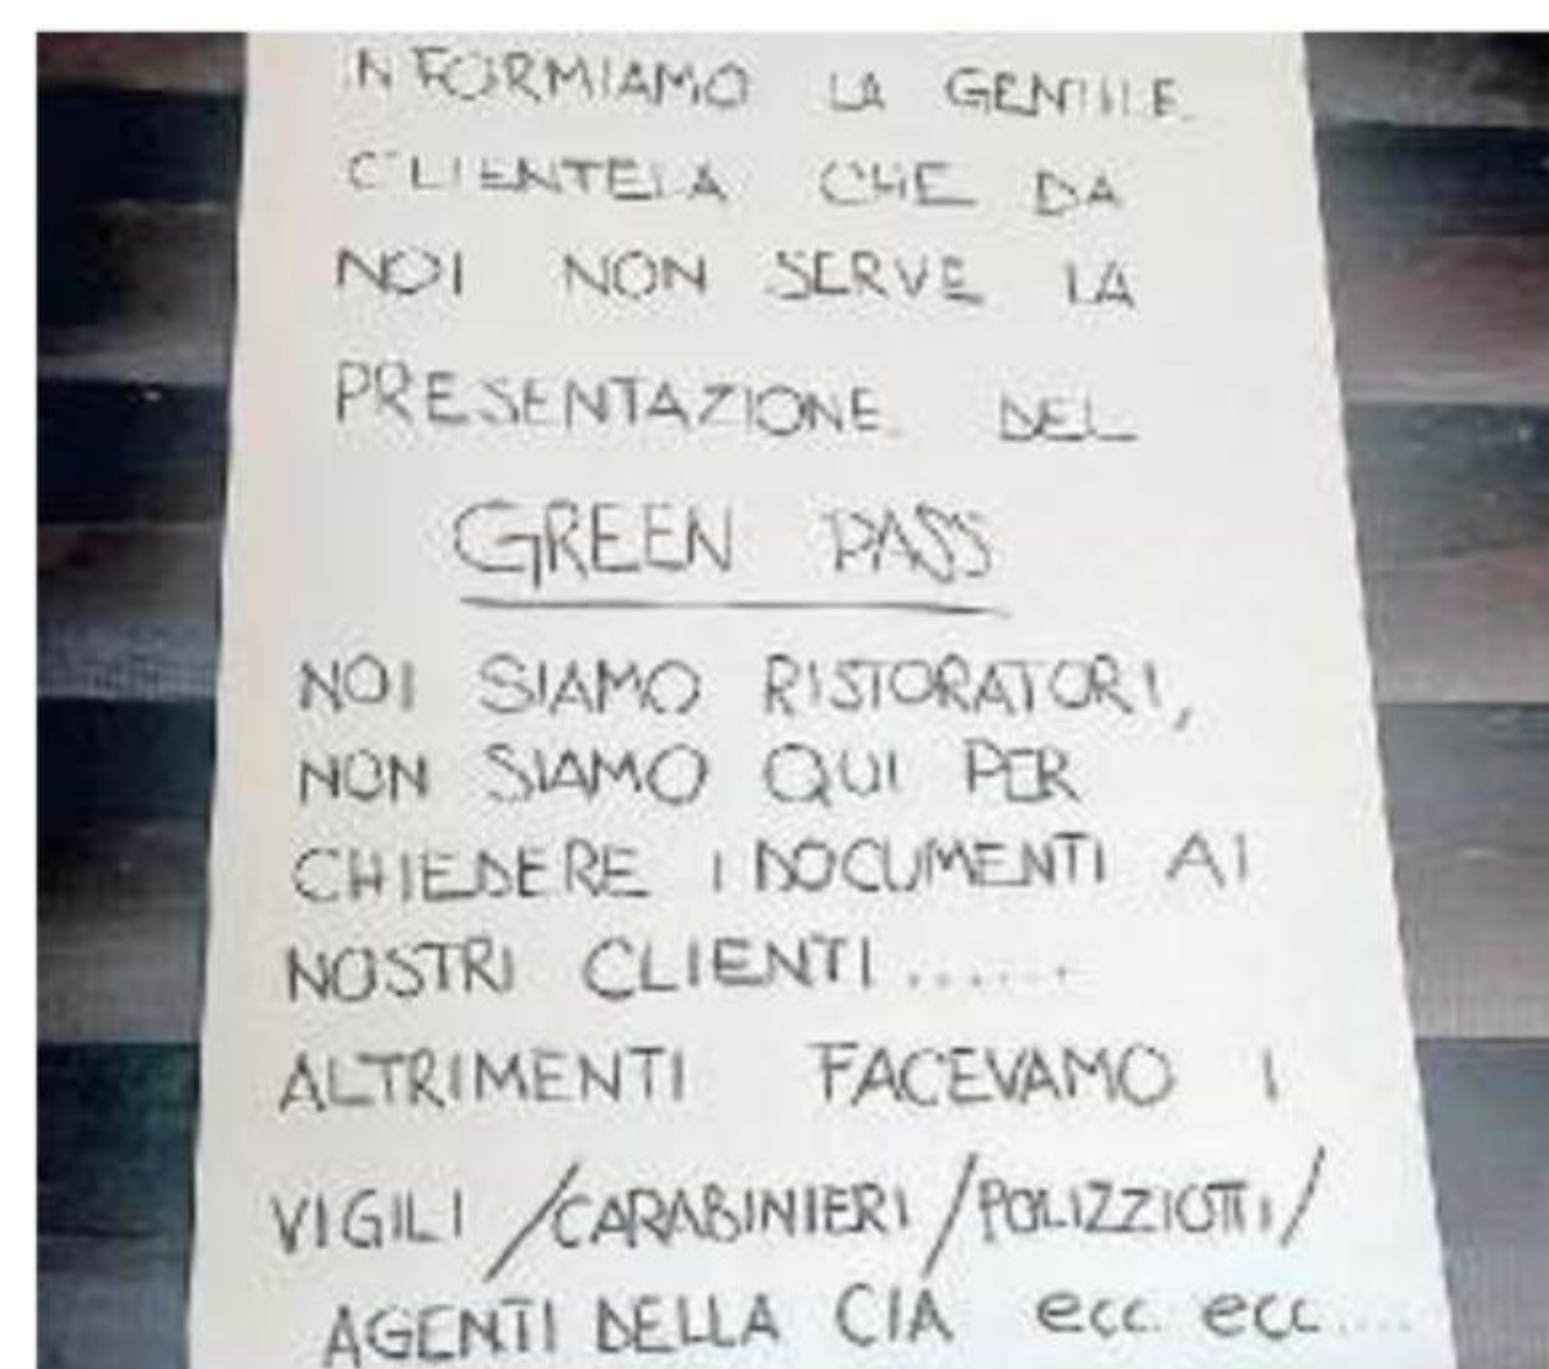 INFORMIAMO LA GENTILE
CLIENTELA CHE DA
NOI NON SERVE LA
PRESENTAZIONE DEL
GREEN PASS
NOI SIAMO RISTORATORI,
NON SIAMO QUI PER
CHIEDERE I DOCUMENTI AI
NOSTRI CLIENTI.......
ALTRIMENTI FACEVAMO I
VIGILI /CARABINIERI /POLIZZIOTTI/
AGENTI DELLA CIA ecc. ecc....